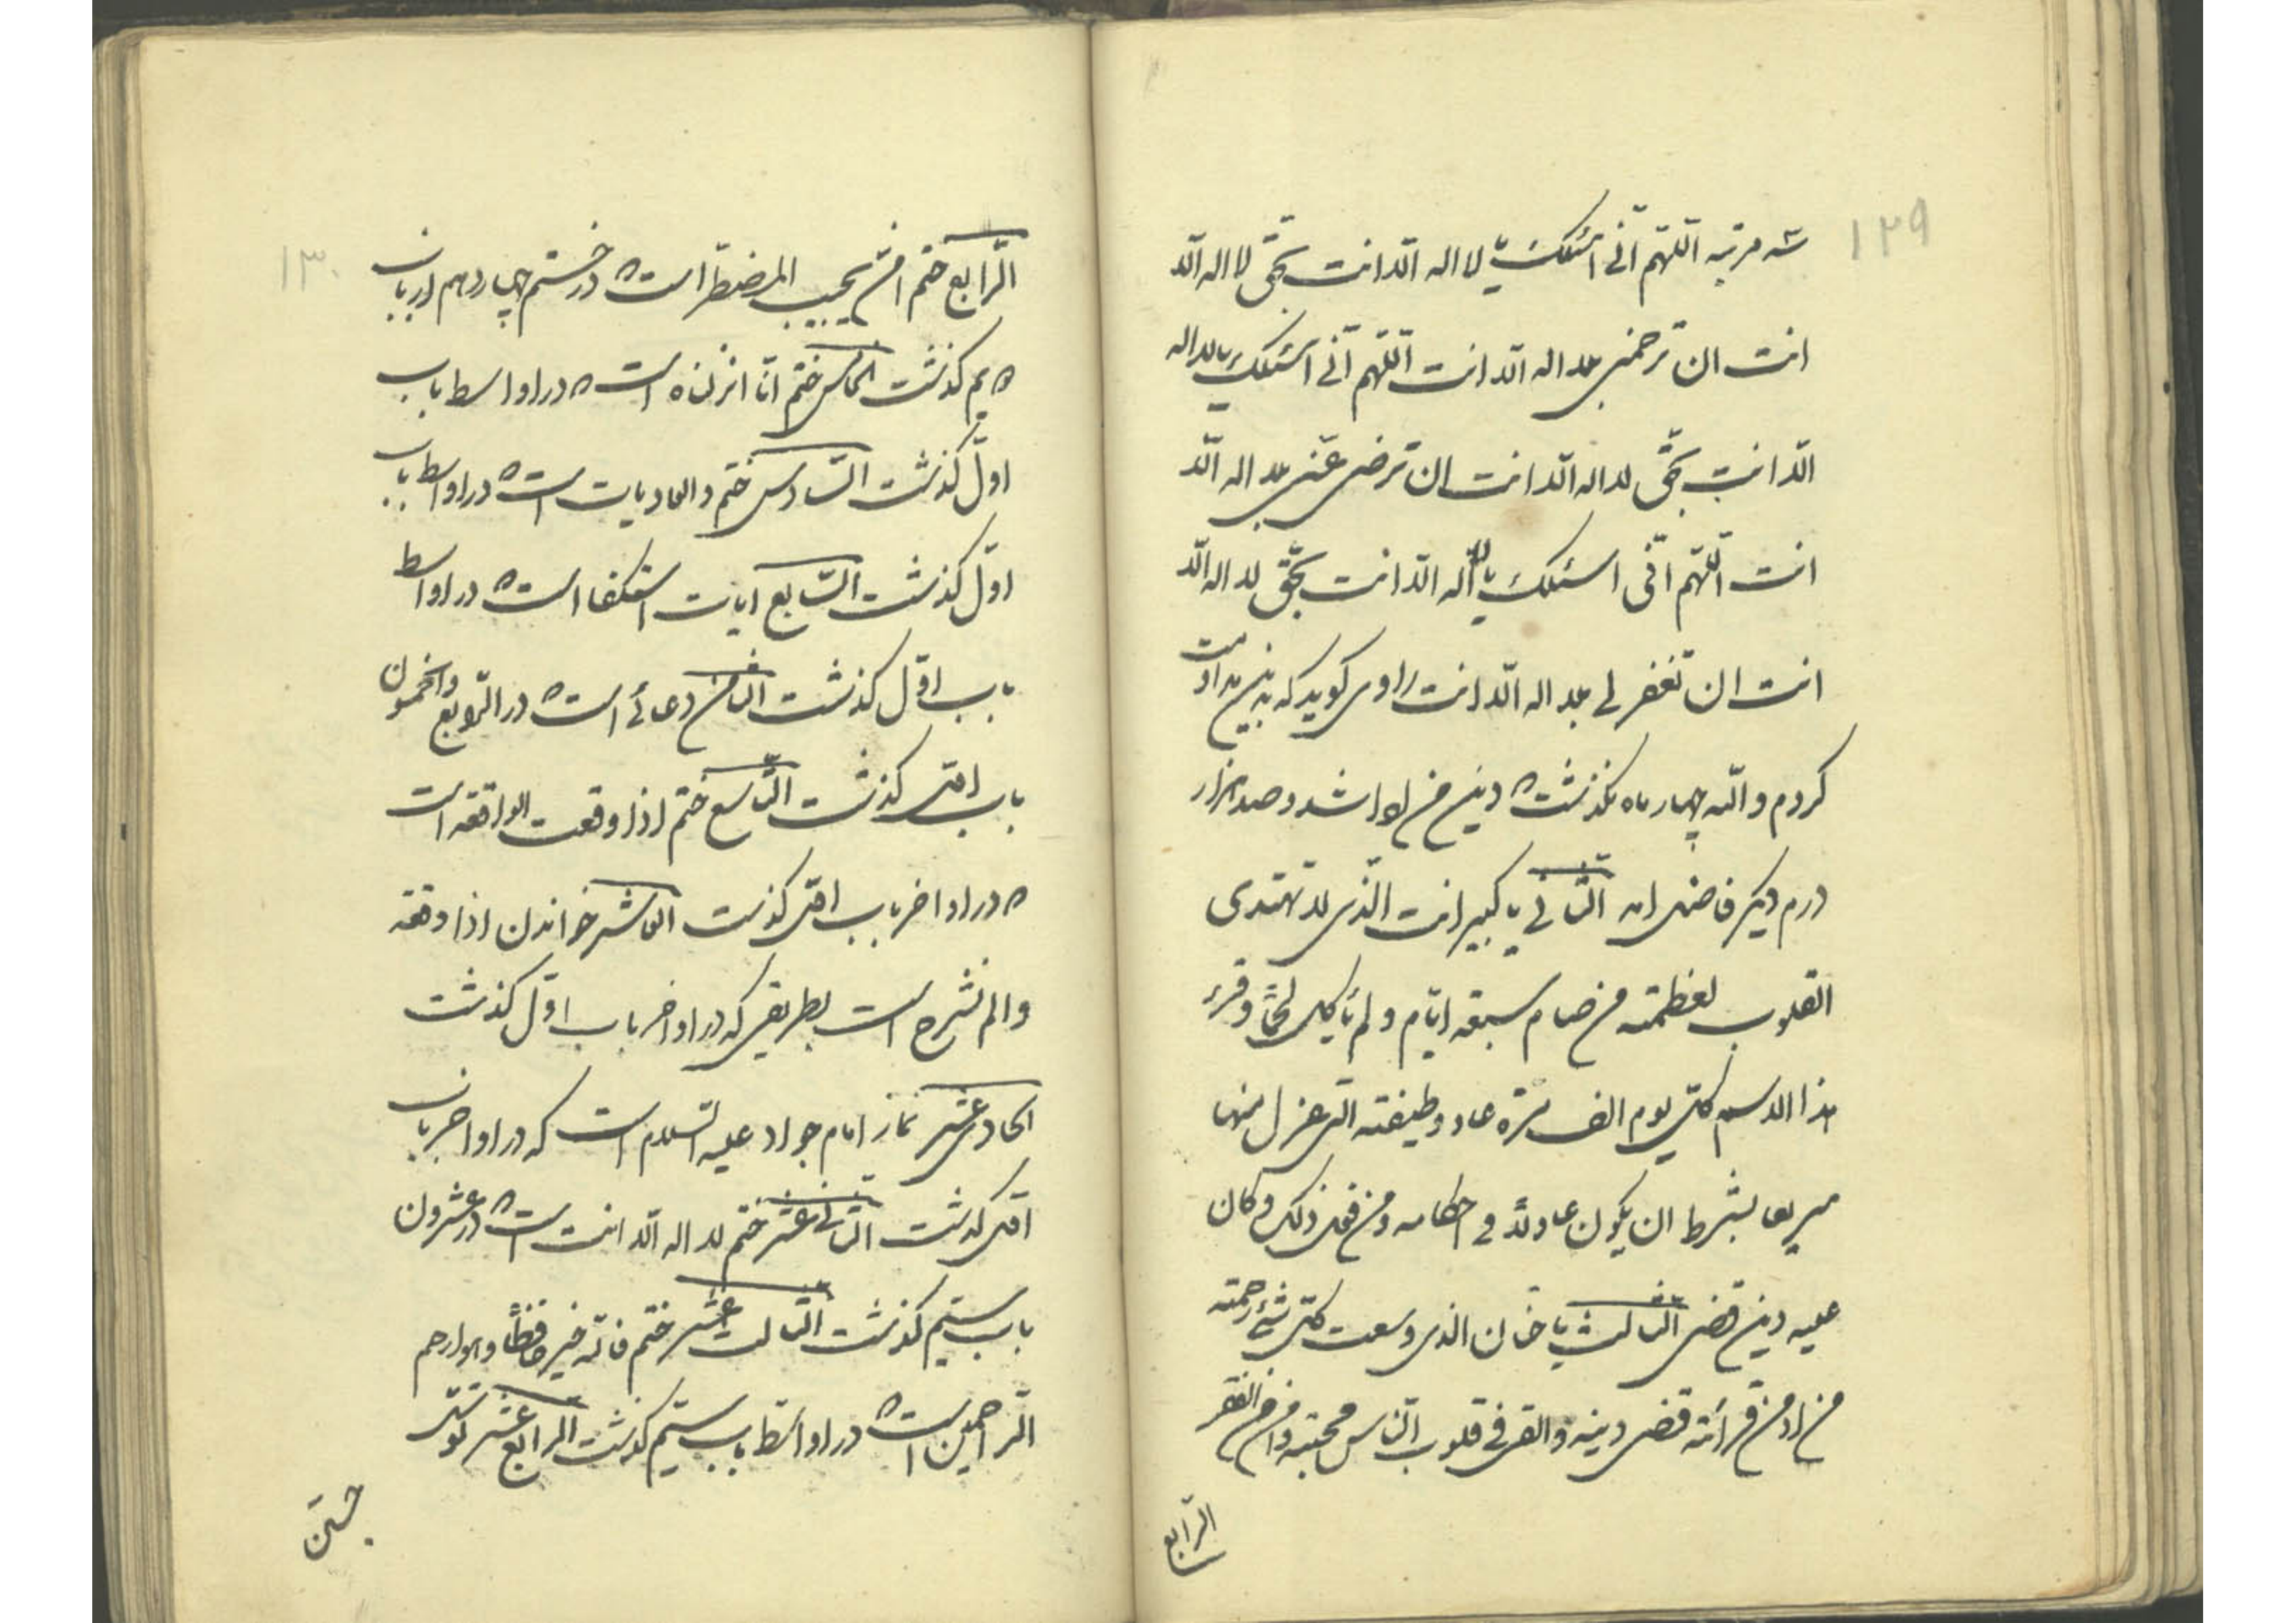 ۱۲۹
سه مرتبه اللهم انی اسئلک یا لا اله الا انت بحق لا اله الا
انت ان ترحمنی بلا اله الا انت اللهم انی اسئلک یا لا اله
الا انت بحق لا اله الا انت ان ترضی عنی بلا اله الا
انت اللهم انی اسئلک یا لا اله الا انت بحق لا اله الا
انت ان تغفر لی بلا اله الا انت راوی کوید که بدین مداومت
کردم والله چهار ماه نکذشت که دین من ادا شد و صد هزار
درم دیکر فاضل امد الثانی یا کبیر انت الذی لا تهتدی
القلوب لعظمته من صام سبعة ایام و لم یأکل لحماً و قرء
هذا الاسم کل یوم الف مرة عاد وظیفته التی عزل منها
سریعا بشرط ان یکون عادلاً فی احکامه و من فعل ذلک و کان
علیه دین قضی الثالث یا حنان الذی وسعت کل شیء رحمته
من ادمن قرائته قضی دینه و القی فی قلوب الناس محبته و امن من الفقر
الرابع
۱۳۰
الرابع ختم امن یجیب المضطر است که در ختم چهاردهم از باب
دیم کذشت الخامس ختم انا انزلناه است که در اواسط باب
اول کذشت السادس ختم والعادیات است که در اواسط باب
اول کذشت السابع ایات استکفا است که در اواسط
باب اول کذشت الثامن دعائی است که در الرابع والخمسون
باب اول کذشت التاسع ختم اذا وقعت الواقعه است
که در اواخر باب اول کذشت العاشر خواندن اذا وقعه
والم نشرح است بطریقی که در اواخر باب اول کذشت
الحادی عشر نماز امام جواد علیه السلام است که در اواخر باب
اول کذشت الثانی عشر ختم لا اله الا انت است که در عشرون
باب سیم کذشت الثالث عشر ختم فالله خیر حافظاً و هو ارحم
الراحمین است که در اواسط باب سیم کذشت الرابع عشر توسل
جستن